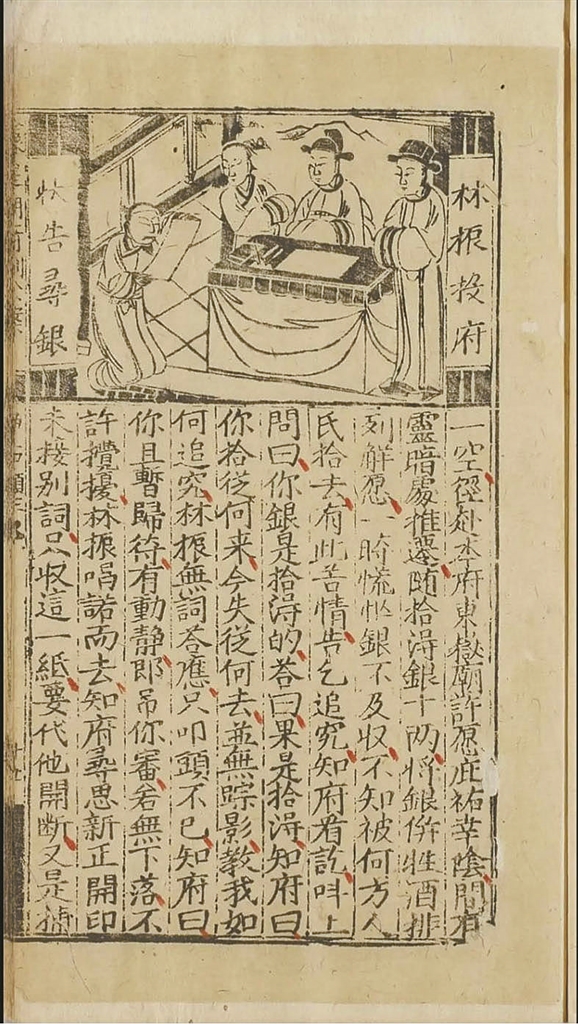 林振投府
狀告尋銀
一空徑赴本府東嶽廟許愿庇祐幸陰間有
靈暗處推還随拾淂銀十两将銀俻牲酒排
列觧愿一時慌忙銀不及収不知被何方人
氏拾去有此苦情告乞追究知府看訖呌上
問曰你銀是拾淂的荅曰果是拾淂知府曰
你拾従何来今失従何去並無踪影教我如
何追究林振無詞荅應只叩頭不已知府曰
你且暫歸待有動靜即吊你審若無下落不
許攪擾林振唱諾而去知府尋思新正開印
未接别詞只収這一紙要代他開断又是